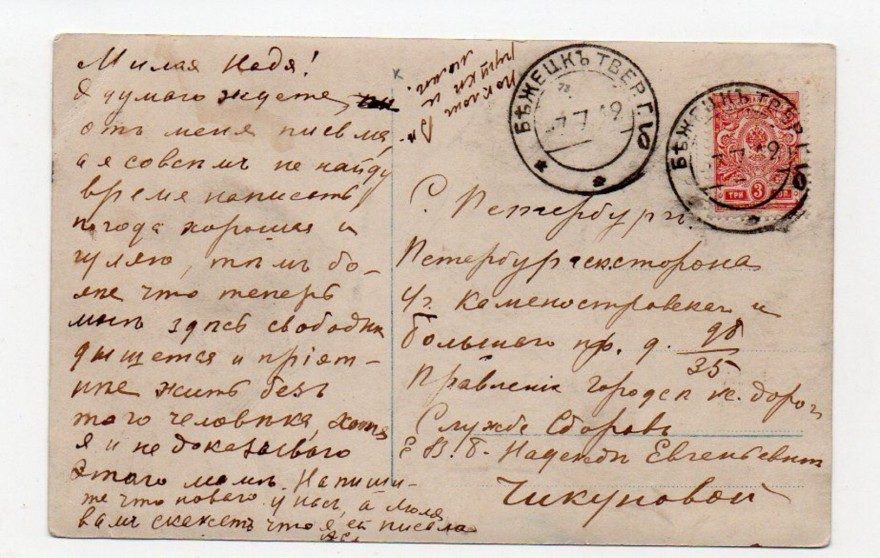 Милая Надя!
Я думаю ждете
отъ меня писемъ,
а я совсѣмъ не найду
время написать
погода хорошая и
гуляю, тѣмъ бо-
лѣе что теперь
мнѣ здѣсь свободнѣ
дышется и прiят-
нѣе жить безъ
того человѣка, хотя
я и не
этого мамѣ. Напиши-
те что новаго у насъ, а Люля
вамъ скажетъ что я ей писала
Поклонъ
и
БѢЖЕЦКЪ ТВЕР. Г.
7 7 19
БѢЖЕЦКЪ ТВЕР. Г.
7 7 19
б
ТРИ 3 КОП.
С. Петербургъ.
Петербургск сторона
уг. Каменостровскаг и
большаго пр. д. 98
35
Правленiе городск ж. дорог
Служба Сборовъ
Е В. б. Надежди Евгеньевит
Чикуновой